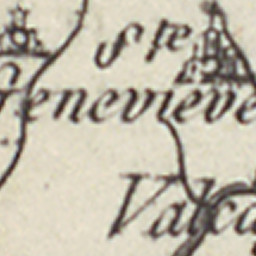 Ste
Genevieve
Valca